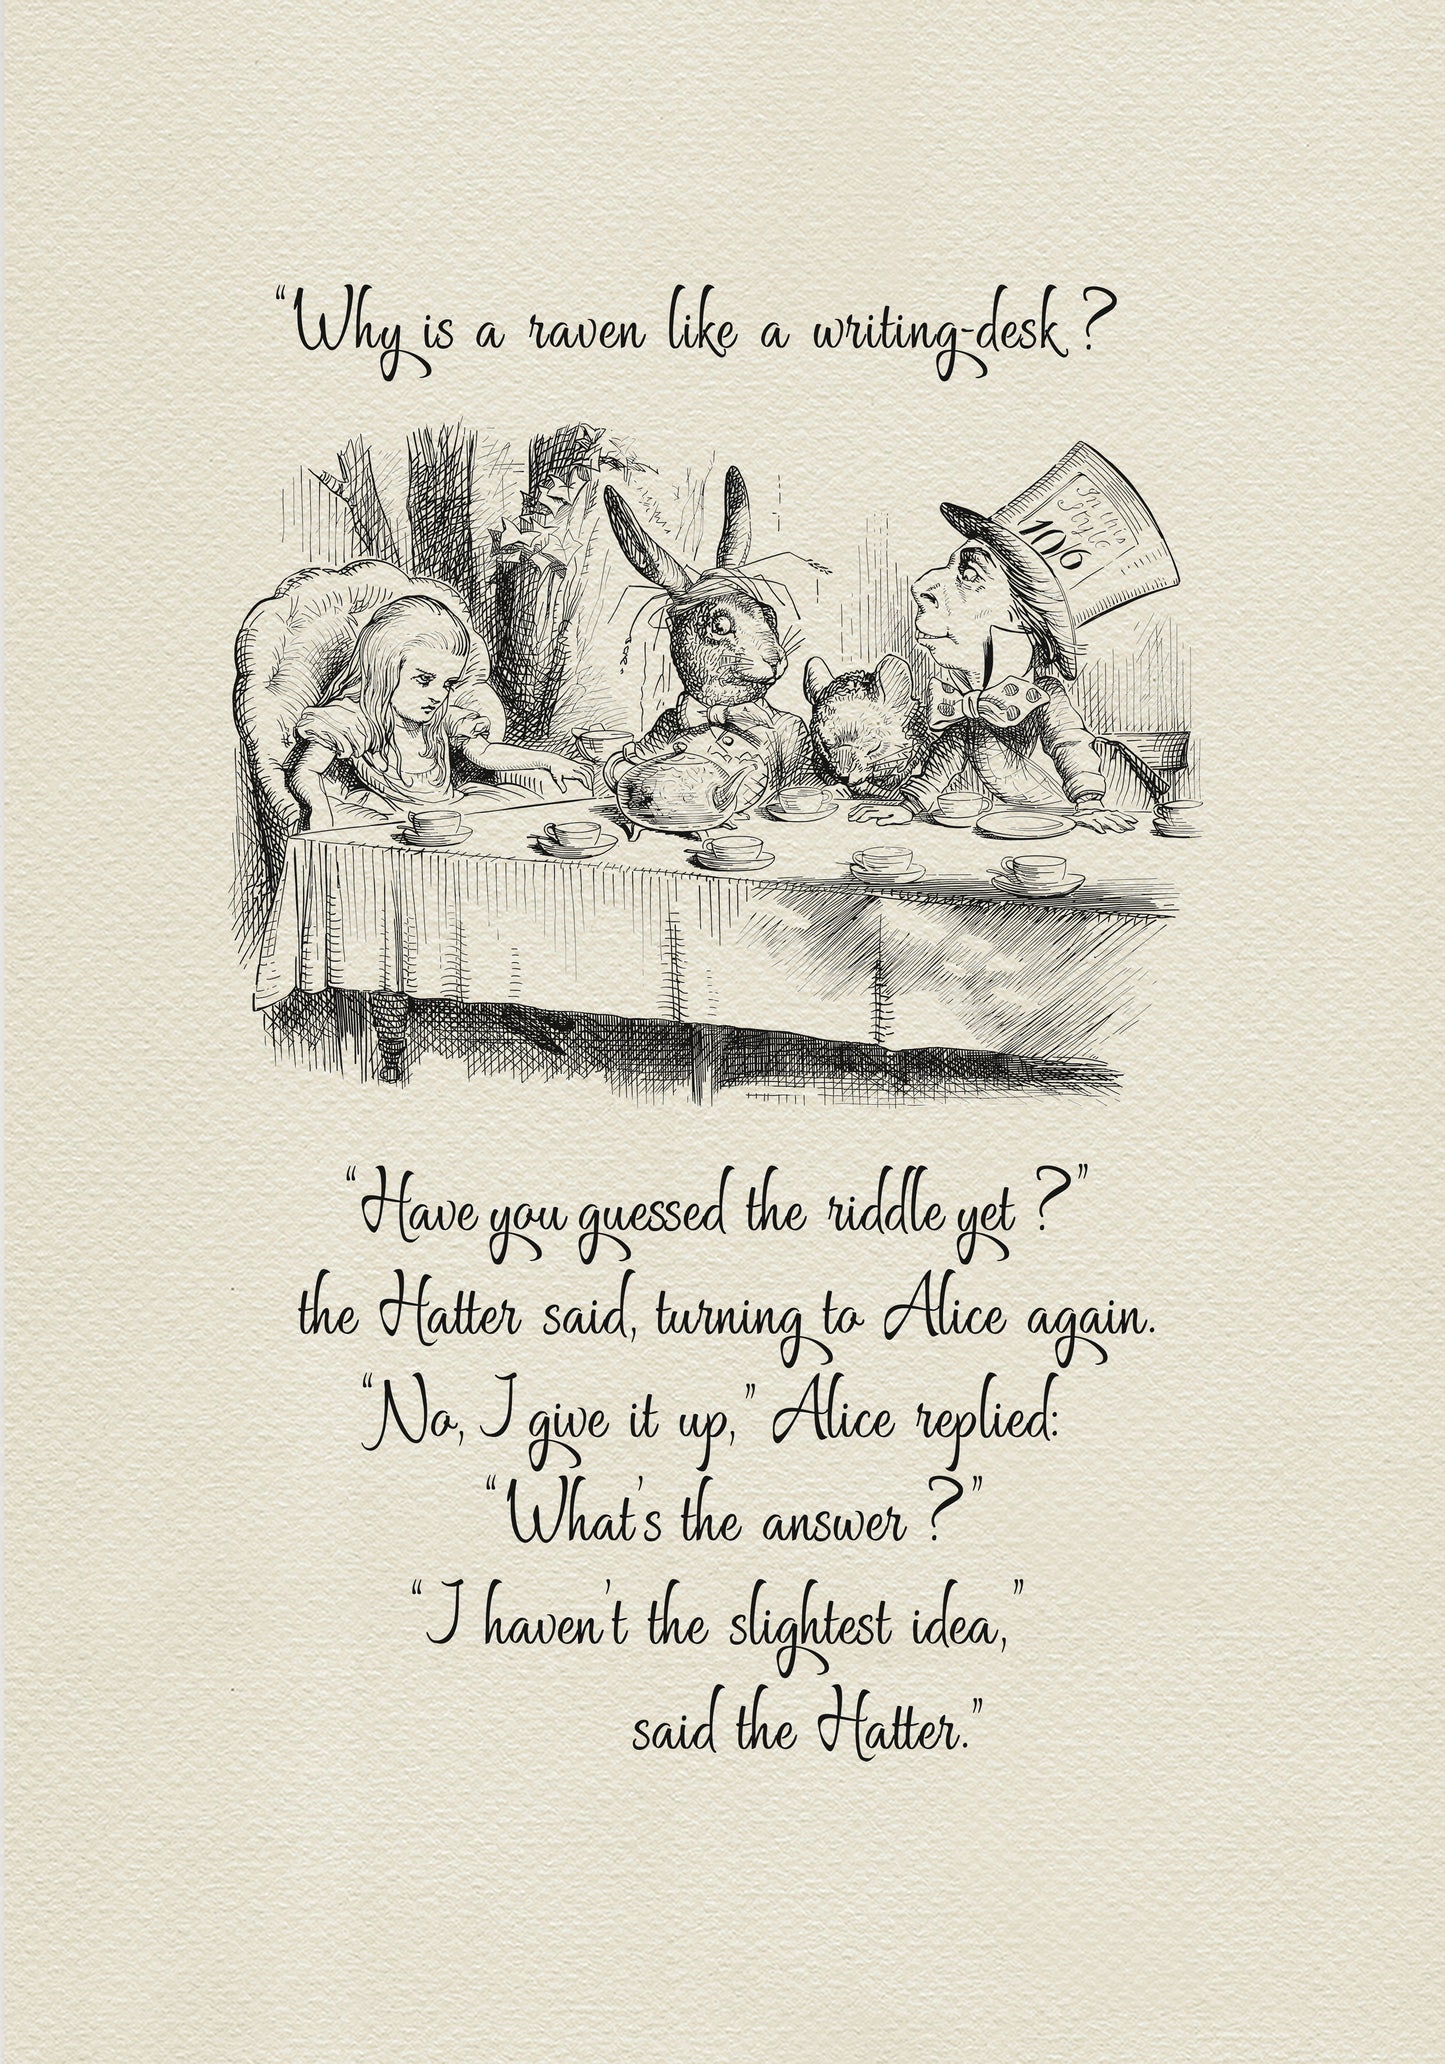 “Why is a raven like a writing-desk ?
In this
Style
10/6
“Have you guessed the riddle yet ?”
the Hatter said, turning to Alice again.
“No, I give it up,” Alice replied:
“What’s the answer ?”
“I haven’t the slightest idea,”
said the Hatter.”